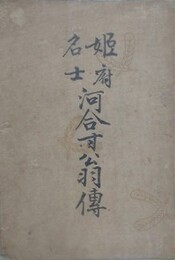 姫府
名士
河合寸翁傳